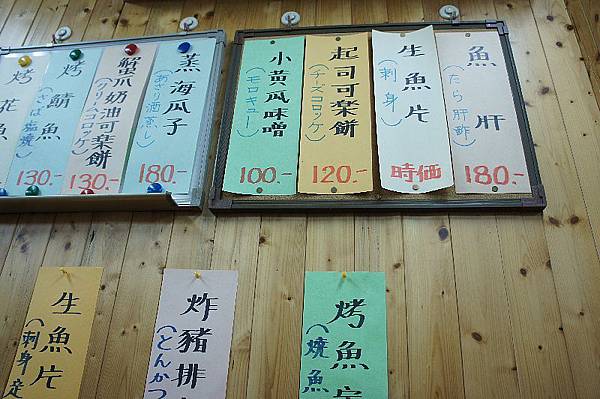 魚肝
(たら肝酢)
180.-
生魚片
(刺身)
時価
起司可楽餅
(チーズコロッケ)
120.-
小黄瓜味噌
(モロキュー)
100.-
蒸海瓜子
(あさり酒蒸)
180.-
蟹爪奶油可楽餅
130.-
烤鯖魚
(さば塩焼)
130.-
烤花魚
烤魚定
(焼魚
炸豬排
(とんかつ
生魚片
(刺身定